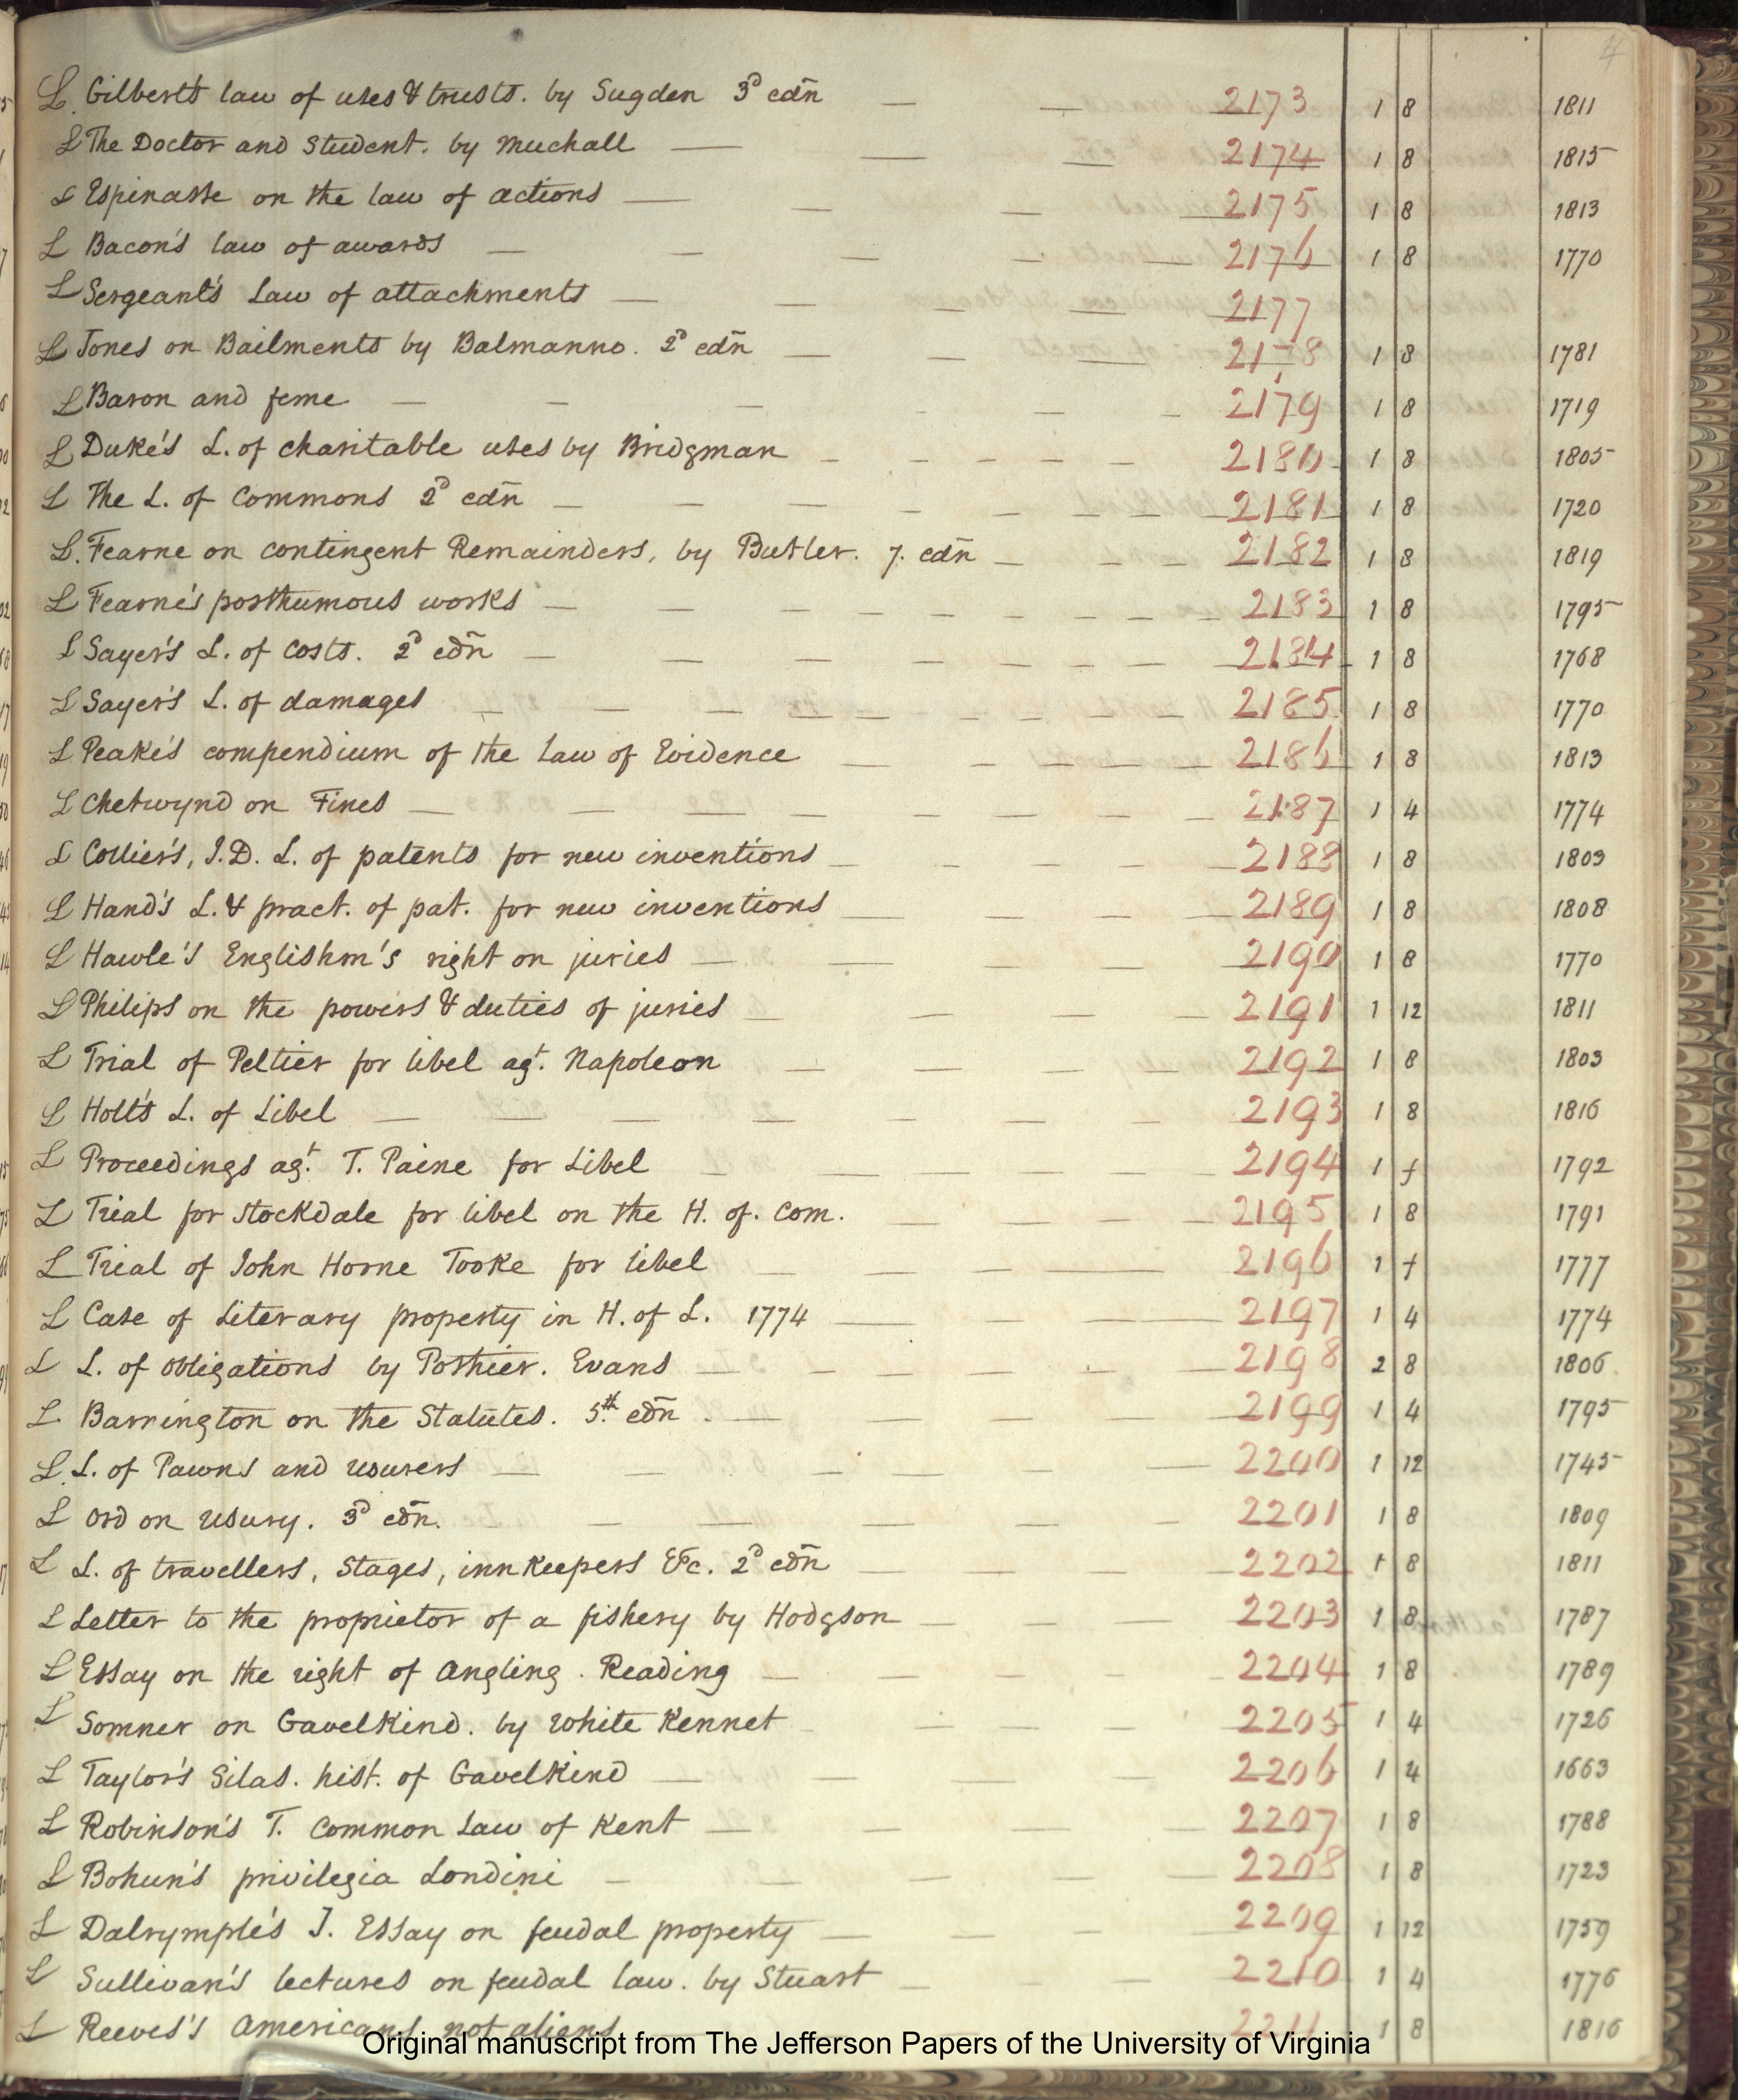 L. Gilbert's law of uses & trusts. by Sugden 3d edn — — 2173 1 8 1811
L The Doctor and Student. by Muchall — — — 2174 1 8 1815
L Espinasse on the law of actions — — — 2175 1 8 1813
L Bacon's law of awards — — — — — 2176 1 8 1770
L Sergeant's Law of attachments — — — — 2177
L Jones on Bailments by Balmanno. 2d edn — — — 2178 1 8 1781
L Baron and feme — — — — — — 2179 1 8 1719
L Duke's L. of charitable uses by Bridgman — — — — — 2180 1 8 1805
L The L. of Commons 2d edn — — — — — — 2181 1 8 1720
L. Fearne on contingent Remainders, by Butler. 7. edn — — — 2182 1 8 1819
L Fearne's posthumous works — — — — — — — — 2183 1 8 1795
L Sayer's L. of Costs. 2d edn — — — — — — — 2184 1 8 1768
L Sayer's L. of damages — — — — — — — — — 2185 1 8 1770
L Peake's compendium of the Law of Evidence — — — — 2186 1 8 1813
L Chetwynd on Fines — — — — — — — — 2187 1 4 1774
L Collier's, J.D. L. of patents for new inventions — — — — 2188 1 8 1803
L Hand's L. & pract. of pat. for new inventions — — — — 2189 1 8 1808
L Hawle's Englishm's right on juries — — — — — 2190 1 8 1770
L Philips on the powers & duties of juries — — — — 2191 1 12 1811
L Trial of Peltier for libel agt. Napoleon — — — — 2192 1 8 1803
L Holt's L. of Libel — — — — — — — 2193 1 8 1816
L Proceedings agt. T. Paine for Libel — — — — — 2194 1 f 1792
L Trial for Stockdale for libel on the H. of. Com. — — — — 2195 1 8 1791
L Trial of John Horne Tooke for libel — — — — 2196 1 f 1777
L Case of Literary property in H. of L. 1774 — — — — 2197 1 4 1774
L L. of obligations by Pothier. Evans — — — — — — 2198 2 8 1806
L. Barrington on the Statutes. 5.th edn. — — — 2199 1 4 1795
L. L. of Pawns and usurers — — — — — — 2200 1 12 1745
L Ord on Usury. 3d edn. — — — — — — 2201 1 8 1809
L L. of travellers, Stages, innkeepers &c. 2d edn — — — — 2202 1 8 1811
L Letter to the proprietor of a fishery by Hodgson — — — — 2203 1 8 1787
L Essay on the right of angling. Reading — — — — 2204 1 8 1789
L Somner on Gavelkind. by White Kennet — — — — 2205 1 4 1726
L Taylor's Silas. hist. of Gavelkind — — — — — 2206 1 4 1663
L Robinson's T. Common Law of Kent — — — — 2207 1 8 1788
L Bohun's privilegia Londini — — — — — 2208 1 8 1723
L Dalrymple's J. Essay on feudal property — — — 2209 1 12 1759
L Sullivan's lectures on feudal law. by Stuart — — — 2210 1 4 1776
L Reeves's Americans not aliens — 2211 1 8 1816
Original manuscript from The Jefferson Papers of the University of Virginia